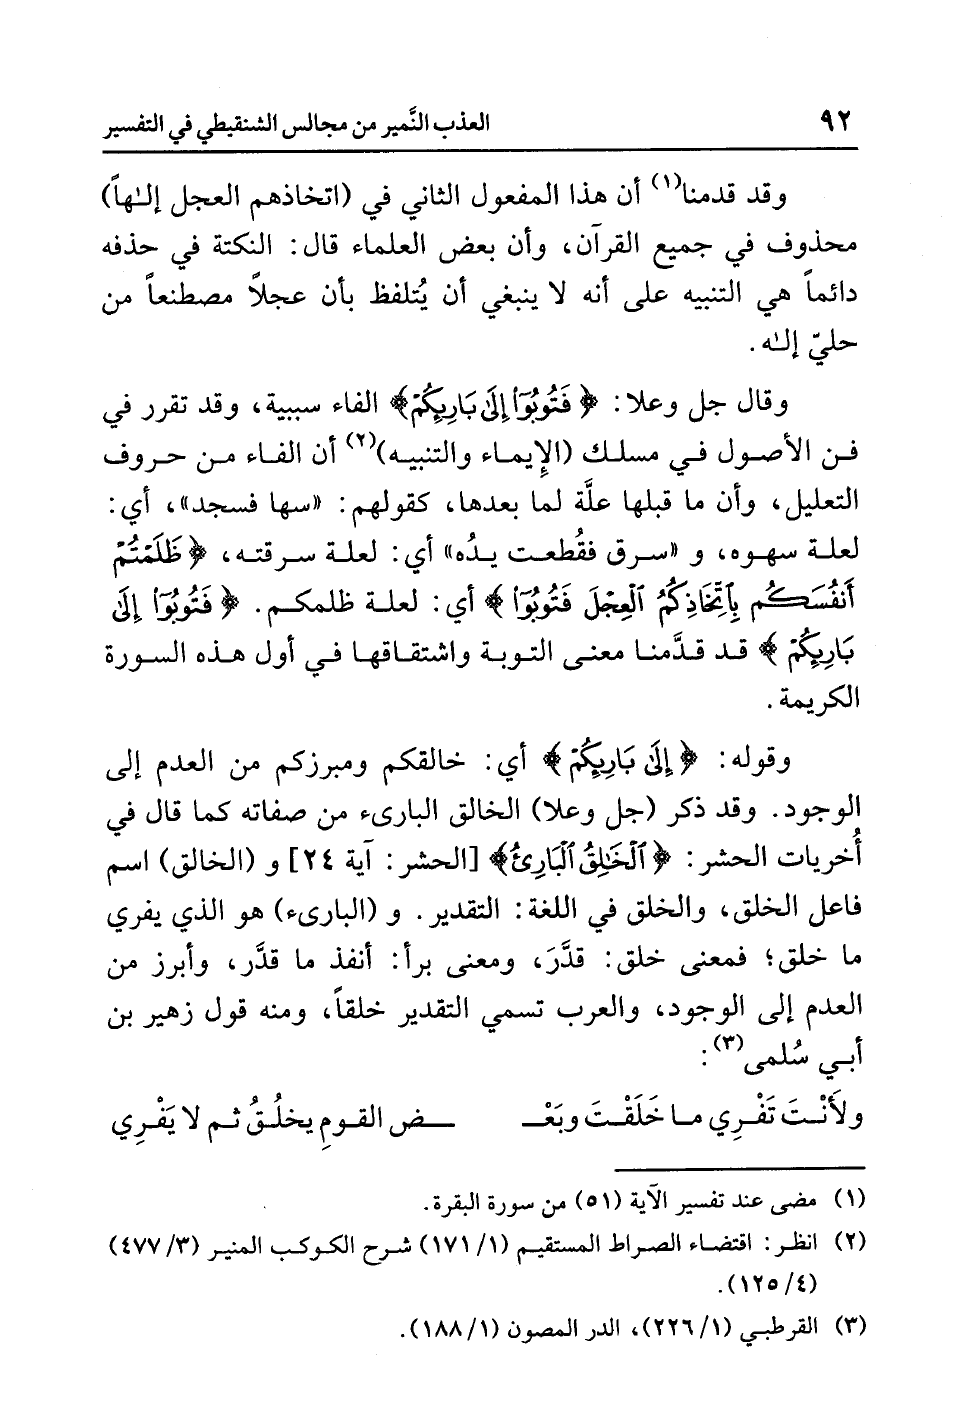 ٩٢ العذب النَّمير من مجالس الشنقيطي في التفسير
وقد قدمنا(١) أن هذا المفعول الثاني في (اتخاذهم العجل إلـٰهاً)
محذوف في جميع القرآن، وأن بعض العلماء قال: النكتة في حذفه
دائماً هي التنبيه على أنه لا ينبغي أن يُتلفظ بأن عجلاً مصطنعاً من
حليّ إلـٰه.
وقال جل وعلا: ﴿فَتُوبُوٓا۟ إِلَىٰ بَارِئِكُمْ﴾ الفاء سببية، وقد تقرر في
فن الأصول في مسلك (الإيماء والتنبيه)(٢) أن الفاء من حروف
التعليل، وأن ما قبلها علَّة لما بعدها، كقولهم: «سها فسجد»، أي:
لعلة سهوه، و «سرق فقُطعت يدُه» أي: لعلة سرقته، ﴿ظَلَمْتُمْ
أَنفُسَكُم بِٱتِّخَاذِكُمُ ٱلْعِجْلَ فَتُوبُوٓا۟﴾ أي: لعلة ظلمكم. ﴿فَتُوبُوٓا۟ إِلَىٰ
بَارِئِكُمْ﴾ قد قدَّمنا معنى التوبة واشتقاقها في أول هذه السورة
الكريمة.
وقوله: ﴿إِلَىٰ بَارِئِكُمْ﴾ أي: خالقكم ومبرزكم من العدم إلى
الوجود. وقد ذكر (جل وعلا) الخالق البارىء من صفاته كما قال في
أُخريات الحشر: ﴿ٱلْخَـٰلِقُ ٱلْبَارِئُ﴾ [الحشر: آية ٢٤] و (الخالق) اسم
فاعل الخلق، والخلق في اللغة: التقدير. و (البارىء) هو الذي يفري
ما خلق؛ فمعنى خلق: قدَّرَ، ومعنى برأ: أنفذ ما قدَّر، وأبرز من
العدم إلى الوجود، والعرب تسمي التقدير خلقاً، ومنه قول زهير بن
أبي سُلمى(٣):
ولأَنْتَ تَفْرِي ما خَلَقْتَ وبَعْـ ـض القومِ يخلُقُ ثم لا يَفْرِي
(١) مضى عند تفسير الآية (٥١) من سورة البقرة.
(٢) انظر: اقتضاء الصراط المستقيم (١/١٧١) شرح الكوكب المنير (٣/٤٧٧)
(٤/١٢٥).
(٣) القرطبي (١/٢٢٦)، الدر المصون (١/١٨٨).